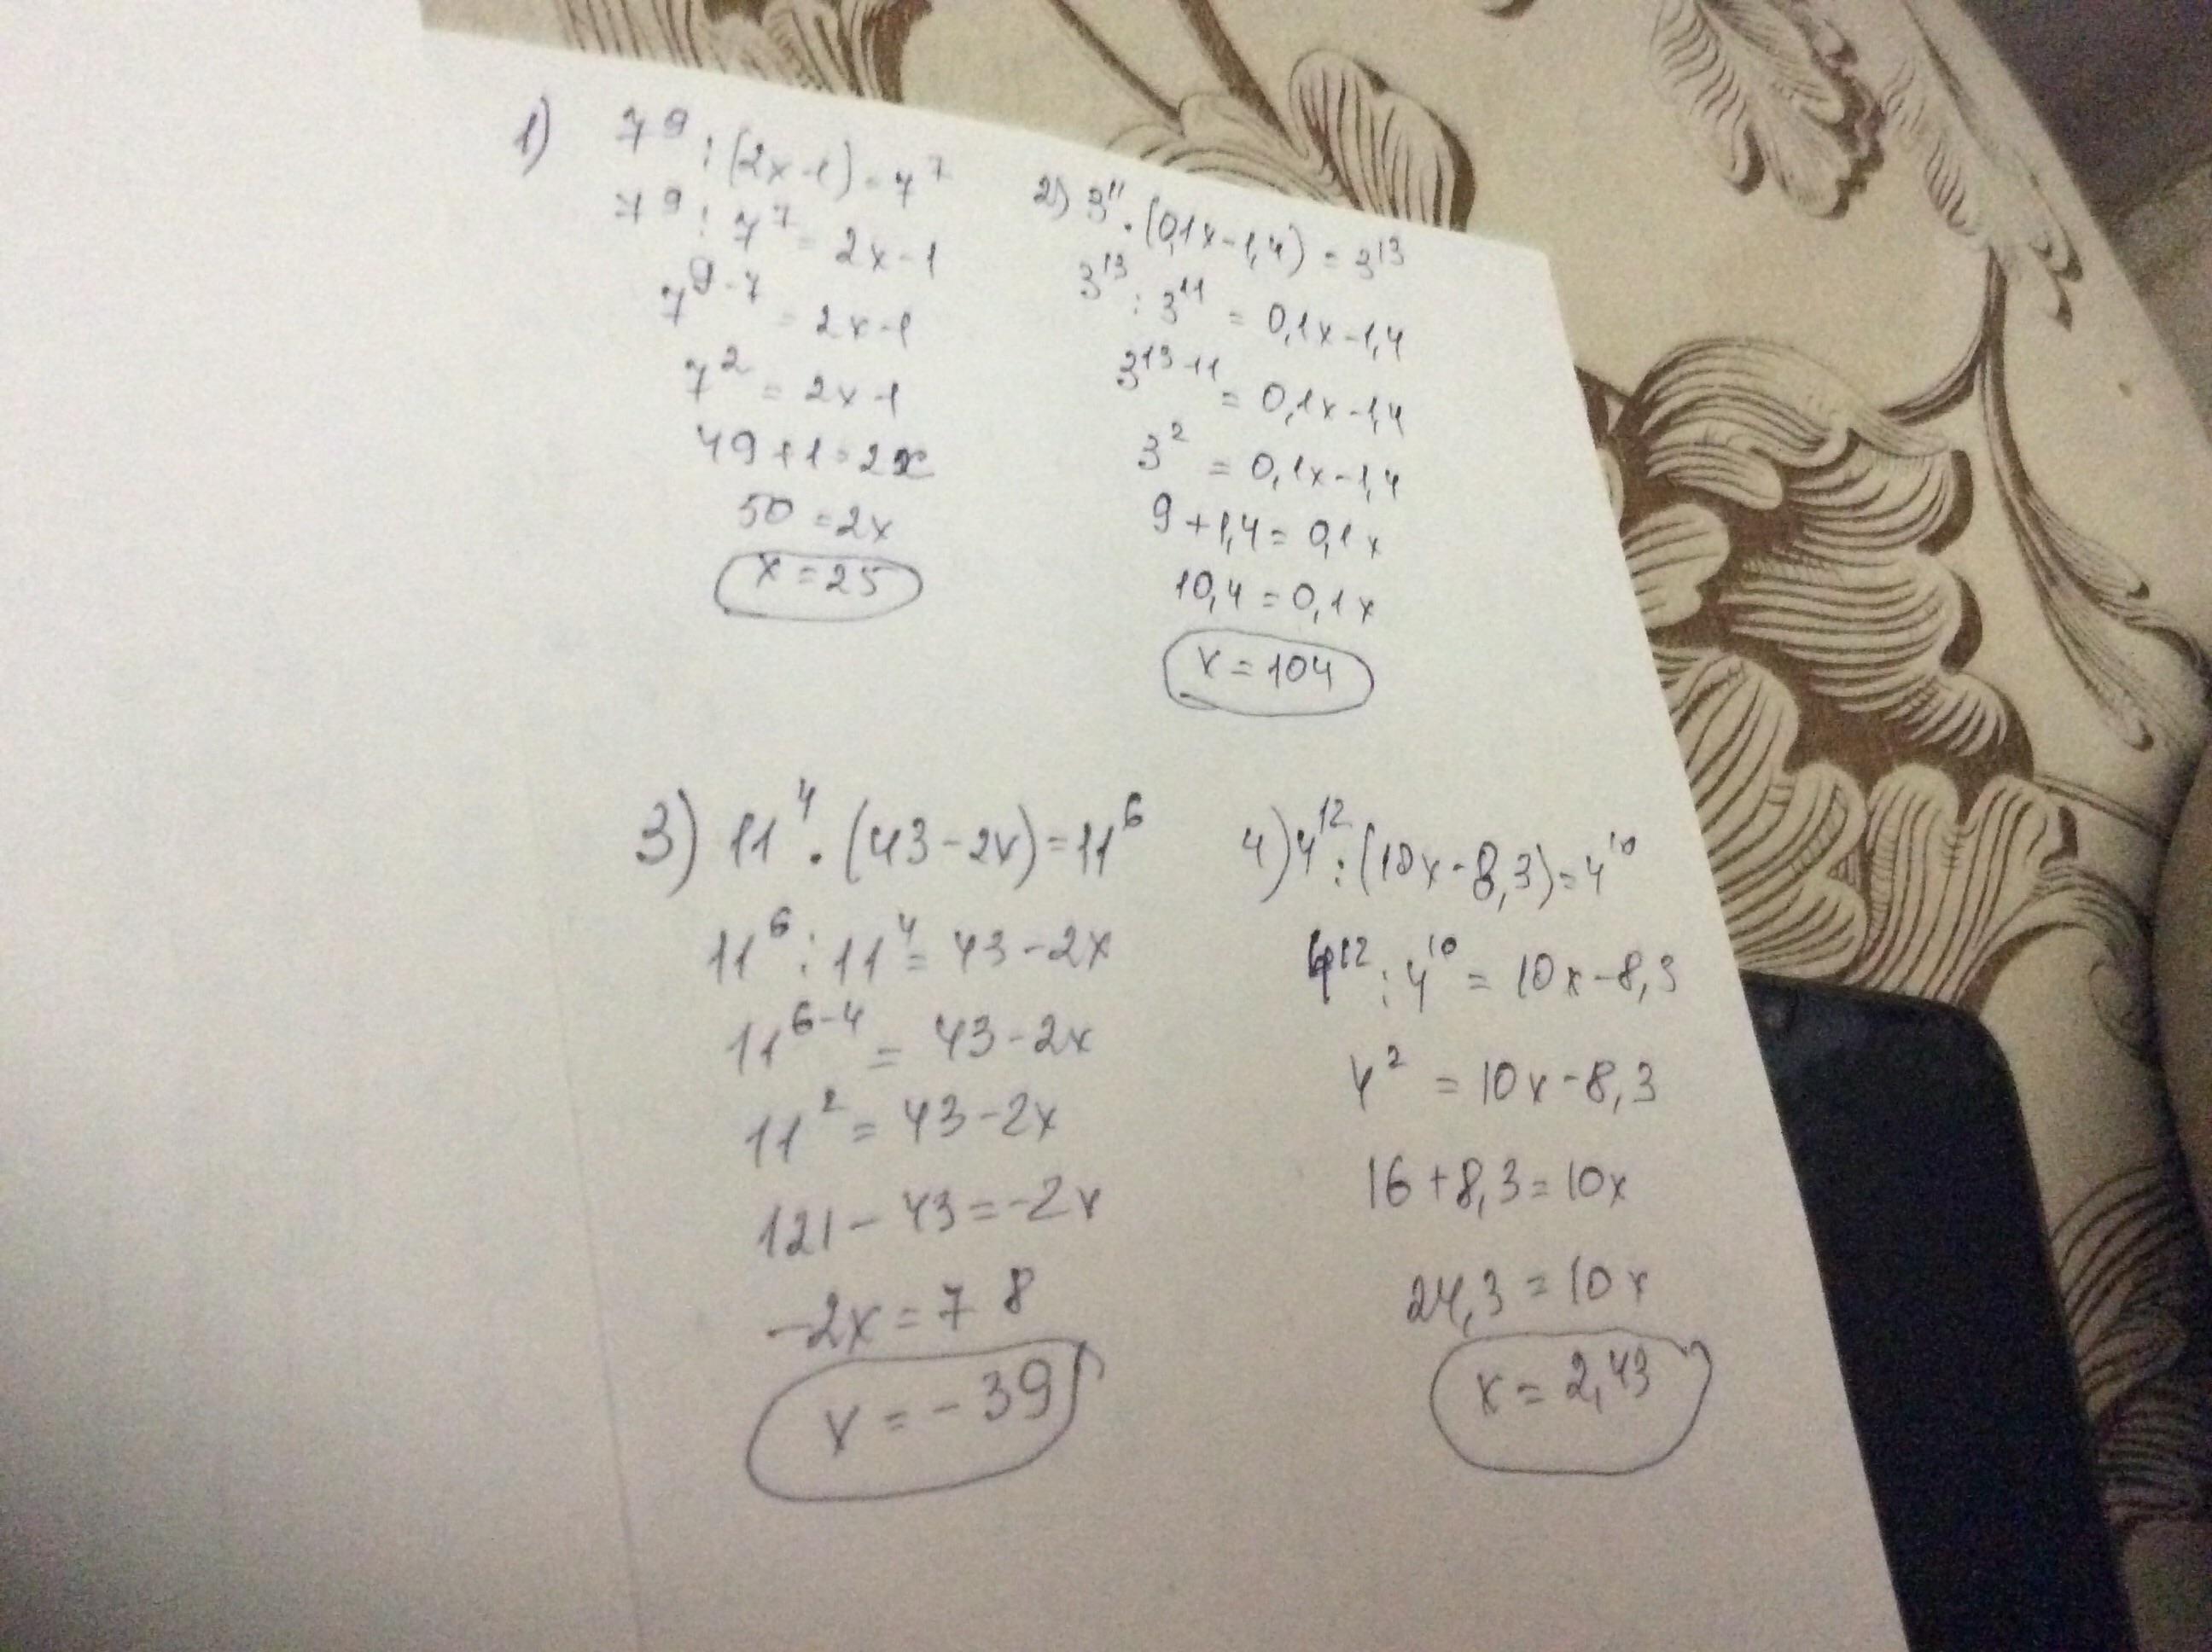 1) 7⁹ : (2x-1) = 7⁷
7⁹ : 7⁷ = 2x-1
7⁹⁻⁷ = 2x-1
7² = 2x-1
49+1=2x
50=2x
x=25
2) 3¹¹ · (0,1x-1,4) = 3¹³
3¹³ : 3¹¹ = 0,1x-1,4
3¹³⁻¹¹ = 0,1x-1,4
3² = 0,1x-1,4
9+1,4=0,1x
10,4=0,1x
x=104
3) 11⁴ · (43-2x)=11⁶
11⁶ : 11⁴ = 43-2x
11⁶⁻⁴ = 43-2x
11² = 43-2x
121-43=-2x
-2x=78
x=-39
4) 4¹² : (10x-8,3)=4¹⁰
4¹² : 4¹⁰ = 10x-8,3
4² = 10x-8,3
16+8,3=10x
24,3=10x
x=2,43